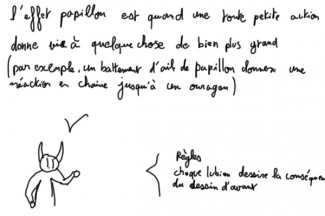 l'effet papillon est quand une toute petite action
donne vie à quelque chose de bien plus grand
(par exemple, un battement d'aile de papillon donnera une
réaction en chaîne jusqu'à un ouragan)
Règles
chaque lutin dessine la conséquen
du dessin d'avant